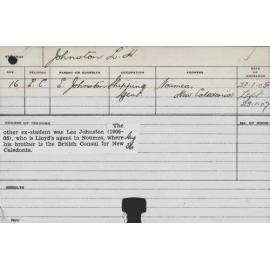 Johnston L. H.
AGE RELIGION PARENT OR GUARDIAN OCCUPATION ADDRESS DATE
16 E.C. E. Johnston Shipping Agent Noumea, New Caledonia 23.1.05
Left
23.1.07
COURSE OF TRAINING NO. OF HOURS
The
other ex-student was Les Johnston (1905-
06), who is Lloyd's agent in Noumea, where
his brother is the British Consul for New
Caledonia.
Aug
36
RESULTS